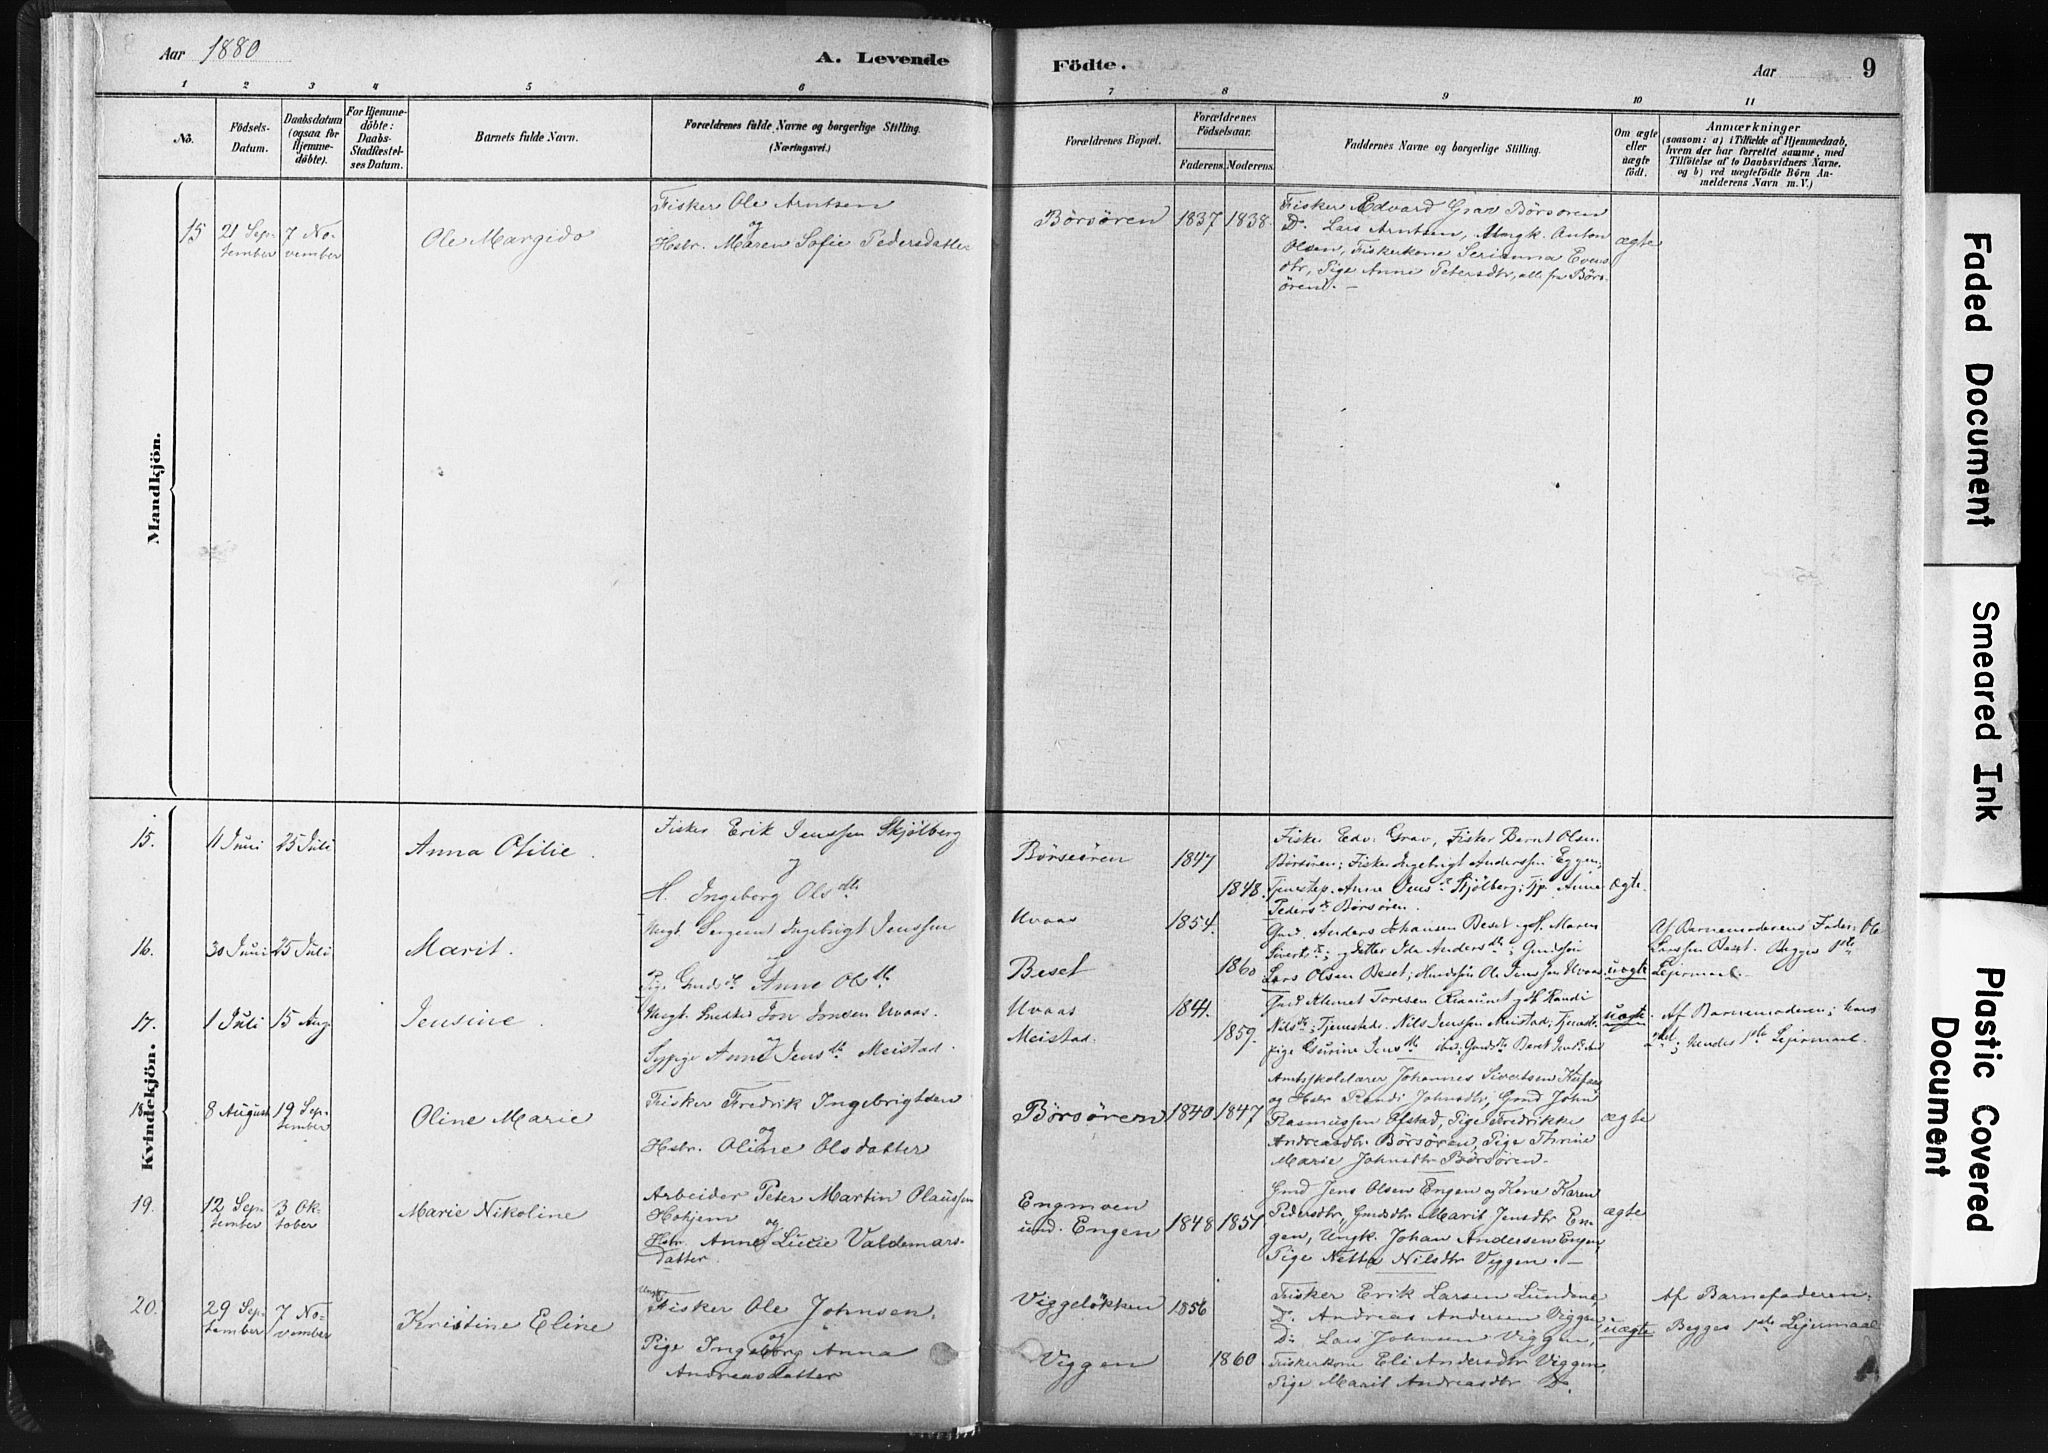 Aar 1880
A. Levende
Födte.
Aar
9
1 2 3 4 5 6 7 8 9 10 11
No.
Födsels-Datum.
Daabsdatum (ogsaa for Hjemme-döbte).
For Hjemme-döbte: Daabs-Stadfæstel-ses Datum.
Barnets fulde Navn.
Forældrenes fulde Navne og borgerlige Stilling. (Næringsvei.)
Forældrenes Bopæl.
Forældrenes Födselsaar.
Faderens. Moderens.
Faddernes Navne og borgerlige Stilling.
Om ægte eller uægte födt.
Anmærkninger
(saasom: a) i Tilfælde af Hjemmedaab,
hvem der har forrettet samme, med
Tilföielse af to Daabsvidners Navne.
og b) ved uægtefödte Börn An-
melderens Navn m. V.)
Mandkjön.
15 21 September 7 November
Ole Margido
Fisker Ole Arntsen
og
Hstr. Maren Sofie Pedersdatter
Börsören 1837 1838
Fisker Edvard Grav Börsören
D. Lars Arntsen, Ungk. Anton
Olsen, Fiskerkone Serianna Evens
dtr, Pige Anne Petersdtr, alle fra Börs-
ören. —
ægte
Kvindekjön.
15. 11 Juni 25 Juli
Anna Otilie.
Fisker Erik Jenssen Skjölberg
og
H. Ingeborg Olsdtr
Börseören 1847 1848.
Fisker Edv. Grav, Fisker Bernt Olsen
Börsören; Fisker Ingebrigt Anderssen Eggen;
Tjenestep. Anne Jensdr Skjölberg; Tjp. Anne
Pedersdr Börsören.
ægte.
16. 30 Juni 25 Juli
Marit.
Ungk. Sergeant Ingebrigt Jenssen
og
Pige Gmdsdr Anne Olsdtr
Uvaas 1854.
Beset 1860
Gmd. Anders Johansen Beset og H. Maren
Sivertsdr; og Datter Ida Andersdtr; Gmdssön
Lars Olsen Beset; Jens Uvaas
uægte
Af Barnemoderens Fader: Ole
Larssen Beset. Begges 1ste
Lejermaal.
17. 1 Juli 15 Aug.
Jensine.
Ungk. Snedker Jon Jonsen Uvaas.
og
Sypige Anne Jensdtr Meistad.
Uvaas 1844.
Meistad. 1859.
Gmd Klemet Toresen og H Randi
Nilsdtr; Tjenestedr. Nils Jenssen Meistad; Tjeneste-
pige Gurine Jensdtr ibid; Gmdsdtr Beret
uægte.
Af Barnemoderen; hans
2det; hendes 1ste Lejermaal.
18. 8 August 19 September
Oline Marie
Fisker Fredrik Ingebrigtsen
og
Hstr. Oline Olsdatter
Börsören 1840 1847
Amtsskolelærer Johannes Sivertsen
og Hstr Randi Johnsdtr, Gmd John
Rasmussen Olstad, Pige Fredrikke
Andreasdtr Börsören, Pige Thrine
Marie Johnsdtr Börsören.
ægte
19. 12 September 3 Oktober
Marie Nikoline
Arbeider Peter Martin Olaussen
Hokjem
og
Hstr. Anne Lucie Valdemars-
datter
Engmoen
und. Engen 1848 1851
Gmd Jens Olsen Engen og Kone Karen
Pedersdtr, Gmdsdtr Marit Jensdtr En-
gen, Ungk. Johan Andersen Engen,
Pige Netta Nilsdtr Viggen. —
ægte
20. 29 September 7 November
Kristine Eline
Ungk
Fisker Ole Johnsen.
og
Pige Ingeborg Anna
Andreasdatter
Viggelökken 1856
Viggen 1860
Fisker Erik Larsen Lundene,
D. Andreas Andersen Viggen,
D: Lars Johnsen Viggen,
Fiskerkone Eli Andersdtr Viggen
Pige Marit Andreasdtr D.
uægte
Af Barnefaderen.
Begges 1ste Lejermaal
Faded Document
Smeared Ink
Plastic Covered
Document